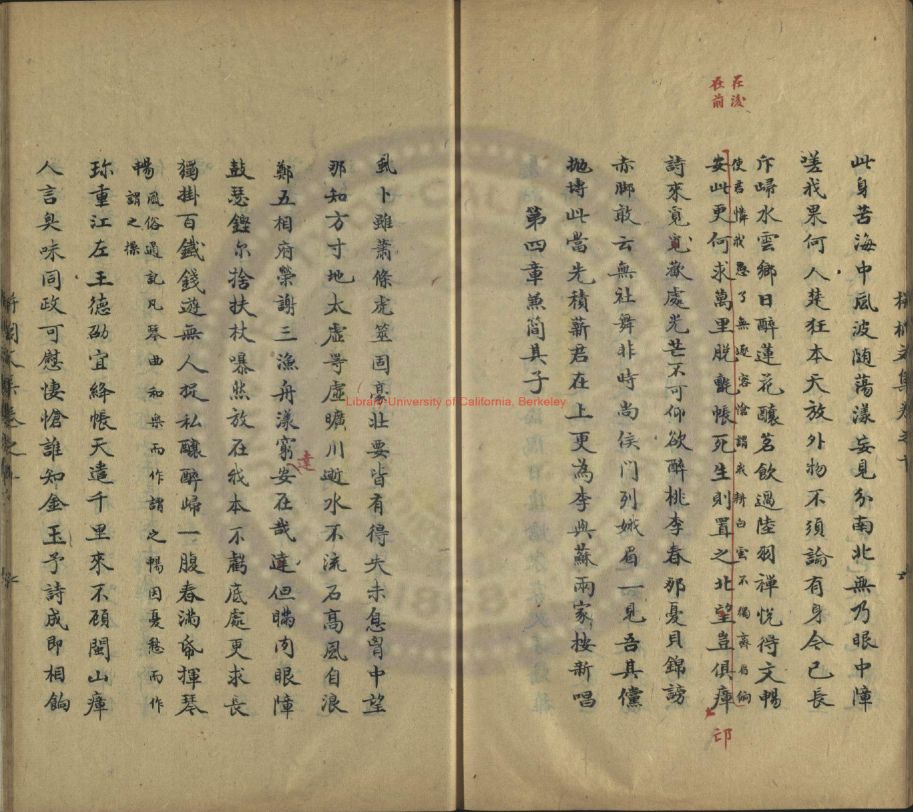 在後
在前
此身苦海中風波随蕩漾妄見分南北無乃眼中障
嗟我果何人楚狂本天放外物不須論有身令已長
斥歸水雲鄉日醉蓮花釀茗飲過陸羽禪悦得文暢
使君憐我愚了無逐客愴謂我耕白雲不獨齋
安此更何求萬里脱氈帳死生則置之北望豈俱瘴
卭
詩來寛寛歡處光芒不可仰欲醉桃李春那憂貝錦謗
赤脚敢云無社舞非時尚侯門列娥眉一見吾其儻
抛塼此當先積薪君在上更為李與蘇兩家按新唱
第四章兼簡其子
龜卜雖蕭條虎筮固豪壯要皆有得失未息胷中望
那知方寸地太虚等虚曠川逝水不流石高風自浪
鄭五相府榮謝三漁舟漾窮安在哉達但瞞肉眼障
達
鼓瑟鏗尔捨扶杖嚗然放在我本不虧底處更求長
獨掛百錢遊無人捉私釀醉歸一腹春满耳揮琴
暢風俗通記凡琴曲和樂而作謂之暢因憂愁而作
謂之操
珎重江左王德劭宜絳帳天造千里來不顧閩山瘴
人言臭味同政可慰悽愴誰知金玉予詩成即相餉
Library-University of California, Berkeley